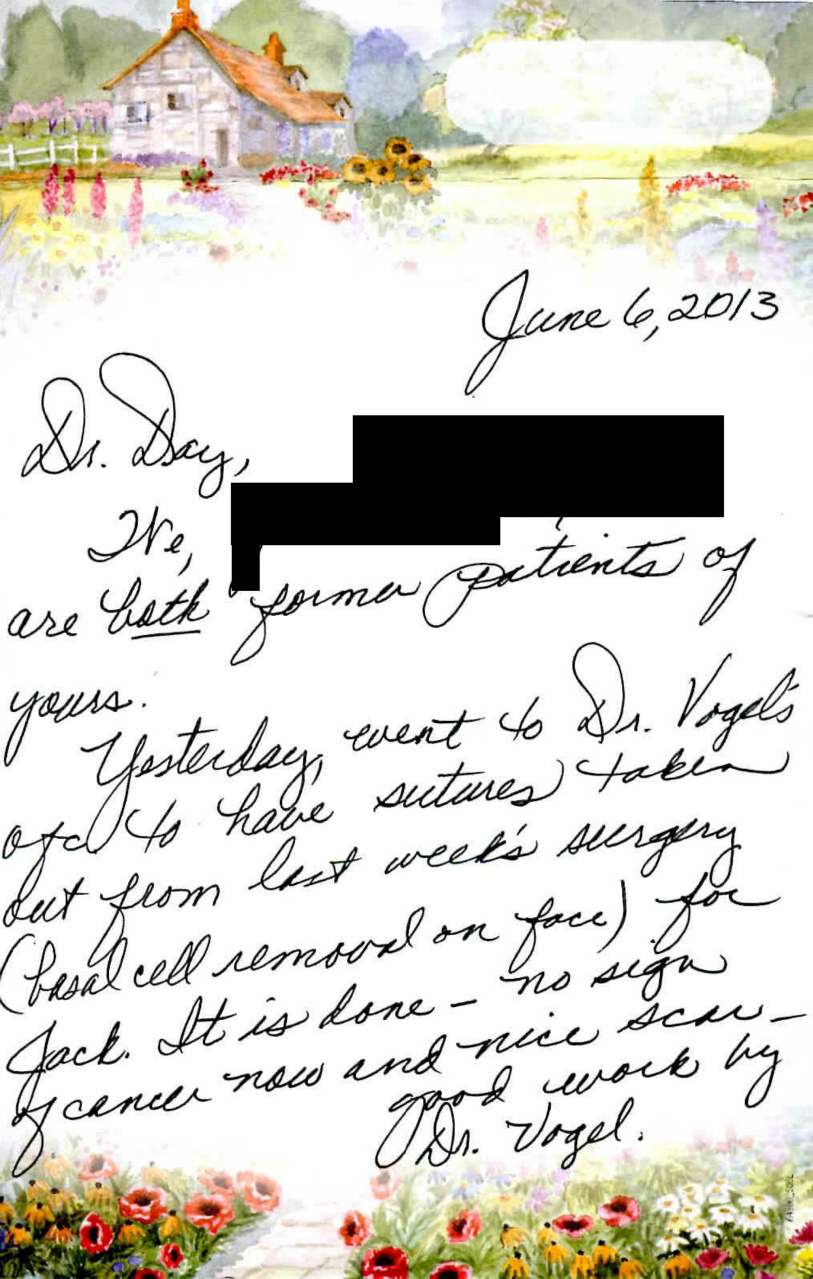 June 6, 2013
Dr. Day,
We,
are both former patients of
yours.
Yesterday, went to Dr. Vogel's
ofc. to have sutures taken
out from last week's surgery
(basal cell removal on face) for
Jack. It is done – no sign
of cancer now and nice scar –
good work by
Dr. Vogel.